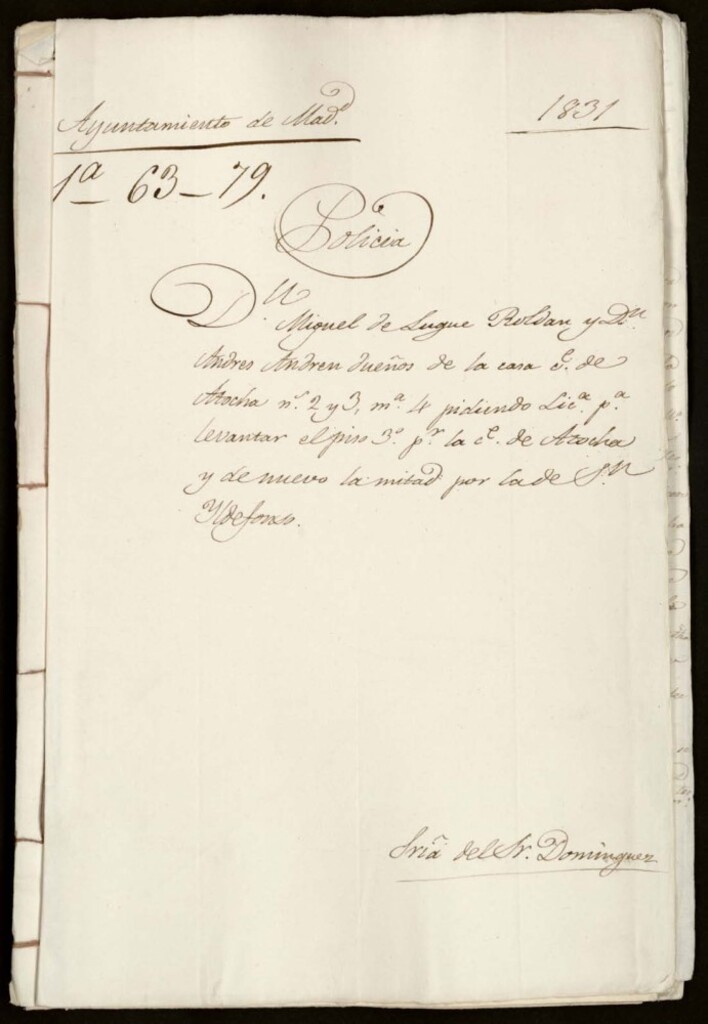 Ayuntamiento de Mad.d
1831
1a – 63 – 79.
Policia
D.n Miguel de Luque Roldan y D.n
Andres Andreu dueños de la casa c.e de
Atocha n.s 2 y 3, m.a 4 pidiendo Lic.a p.a
levantar el piso 3.o p.r la c.e de Atocha
y de nuevo la mitad por la de S.n
Yldefonso.
Sria del Sr. Dominguez